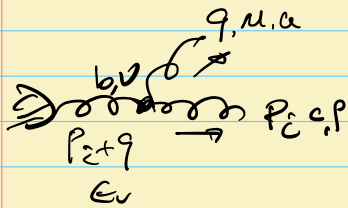 q, μ, a
b, ν
P_i c, ρ
P_i+q
ε_ν